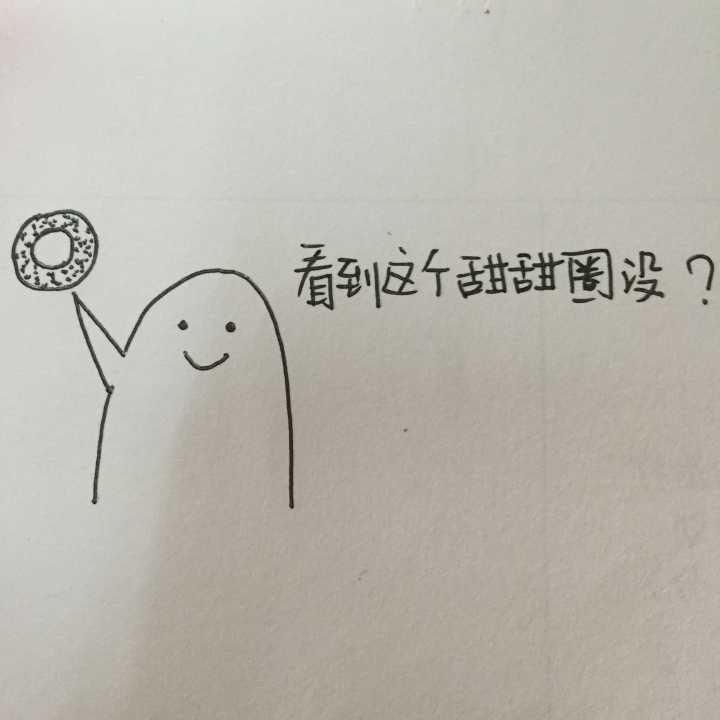 看到这个甜甜圈没？